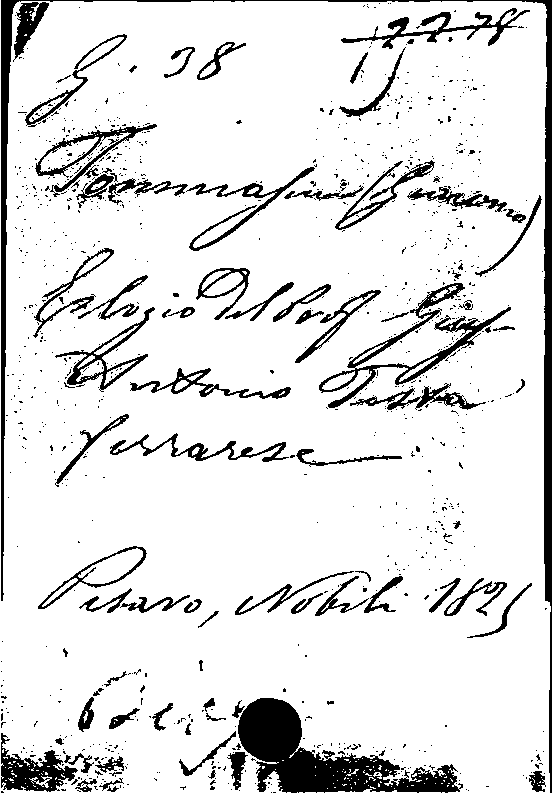 G. 38
17.2.78
Tommasini (Giacomo)
Eelogio Del Prof Gius.
Antonio Testa
Ferrarese
Pesaro, Nobili 1825